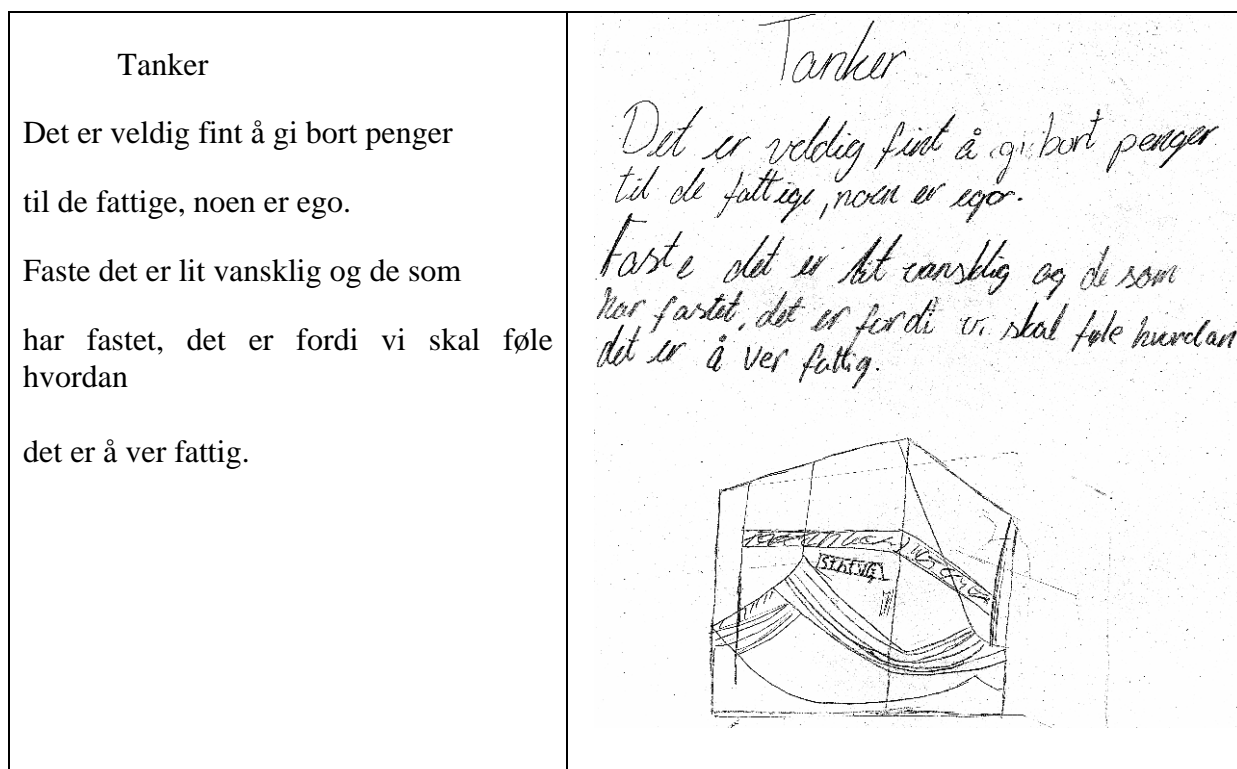 Tanker
Det er veldig fint å gi bort penger
til de fattige, noen er ego.
Faste det er lit vansklig og de som
har fastet, det er fordi vi skal føle
hvordan
det er å ver fattig.
Tanker
Det er veldig fint å gi bort penger
til de fattige, noen er egor.
Faste det er lit vansklig og de som
har fastet, det er fordi vi skal føle hvordan
det er å ver fattig.